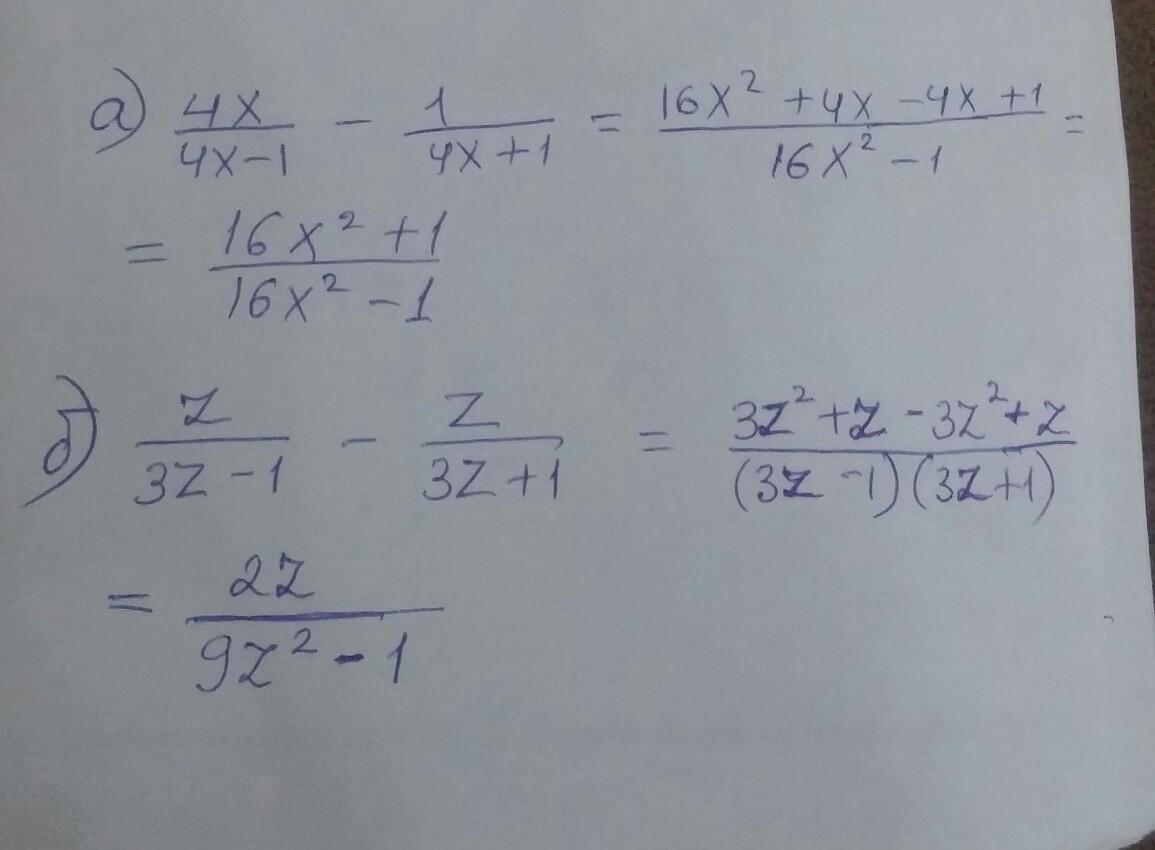 а) 4x/(4x-1) - 1/(4x+1) = (16x² + 4x - 4x + 1)/(16x² - 1) =
= (16x² + 1)/(16x² - 1)
б) z/(3z-1) - z/(3z+1) = (3z² + z - 3z² + z)/((3z-1)(3z+1))
= 2z/(9z² - 1)